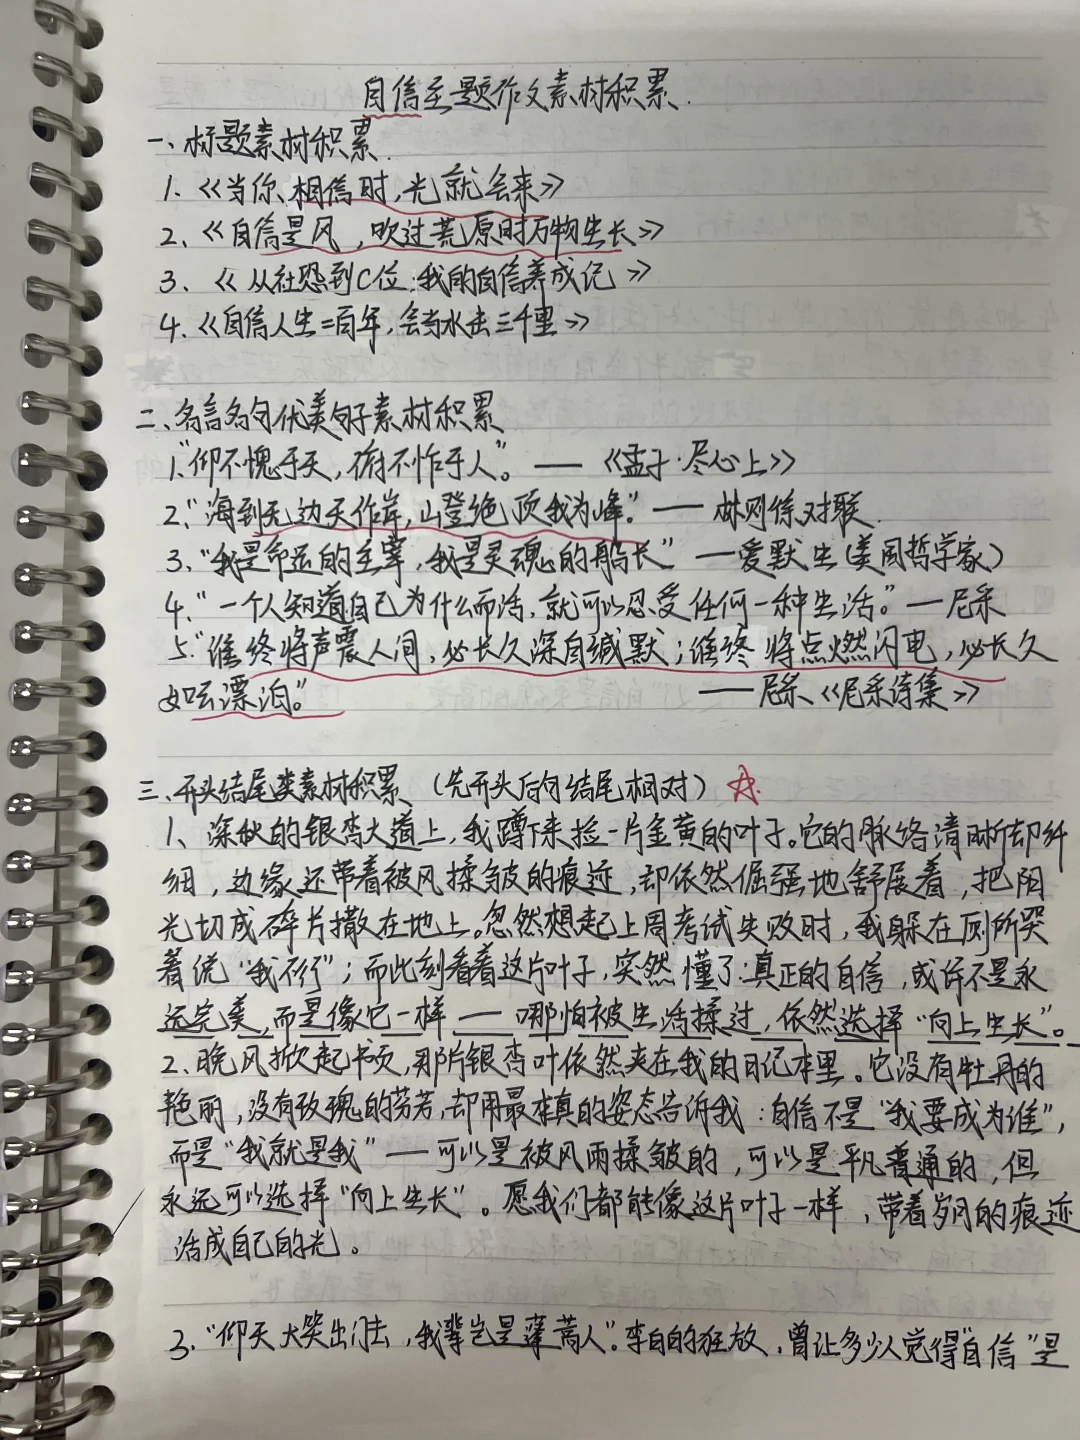 自信主题作文素材积累.
一、标题素材积累.
1.《当你相信时,光就会来》
2.《自信是风,吹过荒原时万物生长》
3.《从社恐到C位:我的自信养成记》
4.《自信人生二百年,会当水击三千里》
二、名言名句优美句子素材积累
1."仰不愧于天,俯不怍于人"。——《孟子·尽心上》
2."海到无边天作岸,山登绝顶我为峰."——林则徐对联.
3."我是命运的主宰,我是灵魂的船长"——爱默生(美国哲学家)
4."一个人知道自己为什么而活,就可以忍受任何一种生活。"—尼采
5."谁终将声震人间,必长久深自缄默;谁终将点燃闪电,必长久
如云漂泊。" ——尼采《尼采诗集》
三、开头结尾类素材积累(先开头后句结尾相对)☆
1、深秋的银杏大道上,我蹲下来捡一片金黄的叶子。它的脉络清晰却纤
细,边缘还带着被风揉皱的痕迹,却依然倔强地舒展着,把阳
光切成碎片撒在地上。忽然想起上周考试失败时,我躲在厕所哭
着说"我不行";而此刻看着这片叶子,突然懂了:真正的自信,或许不是永
远完美,而是像它一样——哪怕被生活揉过,依然选择"向上生长"。
2、晚风掀起书页,那片银杏叶依然夹在我的日记本里。它没有牡丹的
艳丽,没有玫瑰的芬芳,却用最本真的姿态告诉我:自信不是"我要成为谁",
而是"我就是我"——可以是被风雨揉皱的,可以是平凡普通的,但
永远可以选择"向上生长"。愿我们都能像这片叶子一样,带着岁月的痕迹
活成自己的光。
3."仰天大笑出门去,我辈岂是蓬蒿人"。李白的狂放,曾让多少人觉得"自信"是